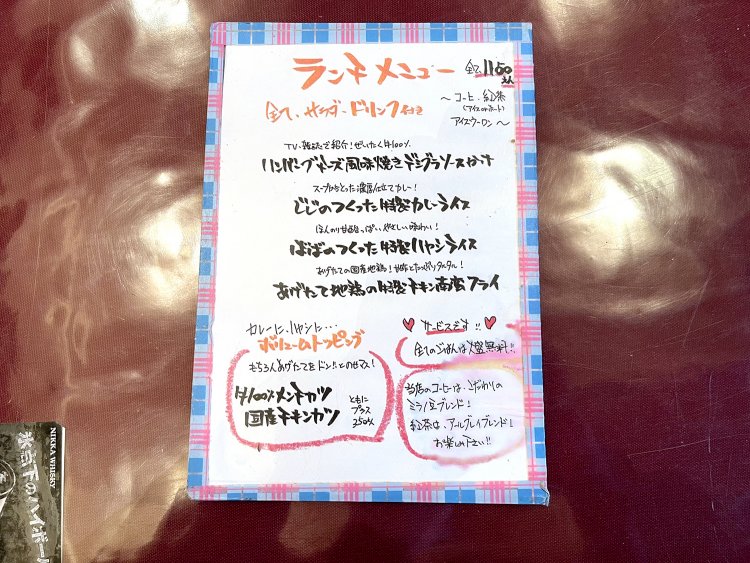 ランチメニュー 全て、1150えん
全て、サラダ、ドリンク付き
～コーヒー、紅茶
(アイスorホット)
アイスウーロン～
TV、雑誌で紹介！ぜいたく牛100％
ハンバーグ チーズ風味焼き デミグラソースがけ
スープからとった濃厚仕立てカレー！
じじのつくった特製カレーライス
ほんのり甘ずっぱい、やさしい味わい！
ばばのつくった特製ハヤシライス
あげたての国産地鶏！甘酢とたっぷりタルタル！
あげたて地鶏の特製チキン南蛮フライ
カレーに、ハヤシに…
ボリュームトッピング
もちろんあげたてをドンとのせマス！
牛100％メンチカツ
国産チキンカツ
ともに
プラス
350えん
サービスです!!
全てのごはんは大盛無料!!
当店のコーヒーは、こだわりの
ミラノ豆ブレンド！
紅茶は、アールグレイブレンド！
お楽しみ下さい!!
NIKKA WHISKY
氷点下のハイボール